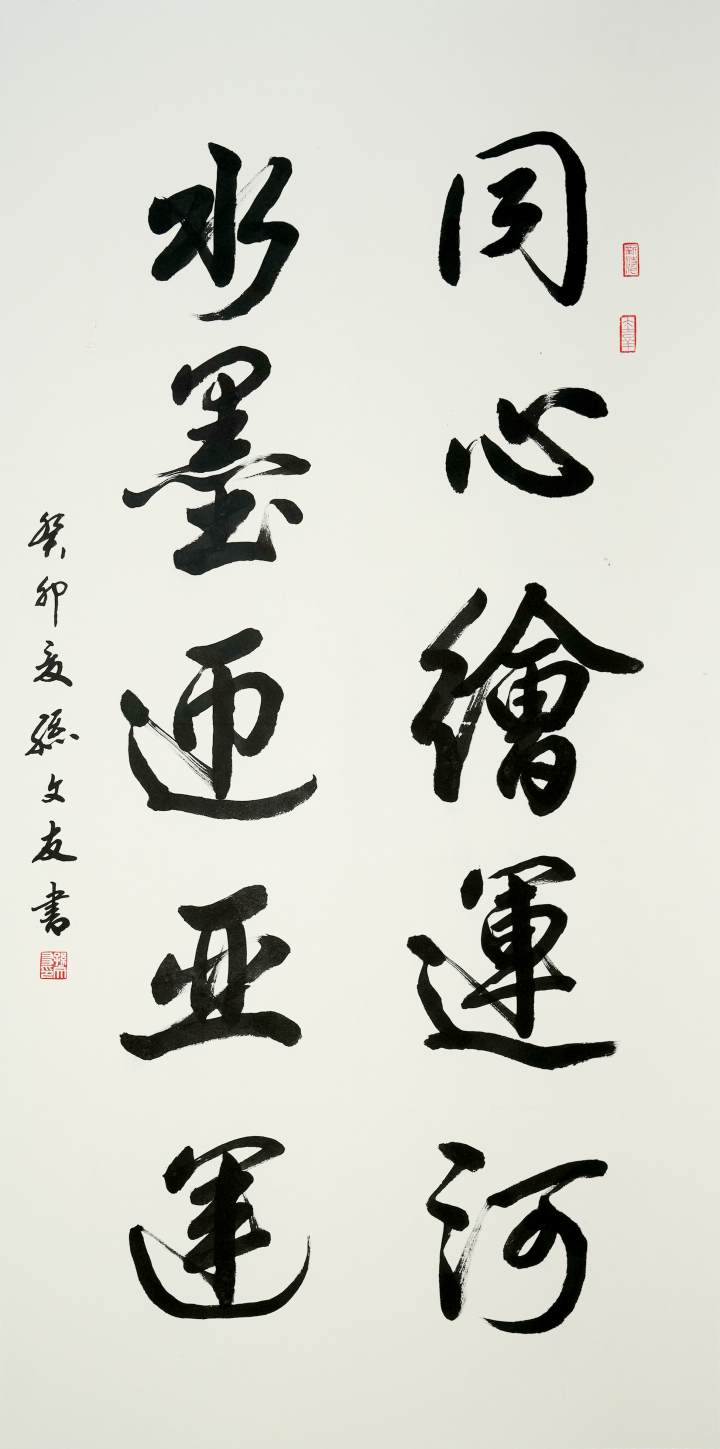 同心繪運河
水墨迎亚運
癸卯夏孫文友書